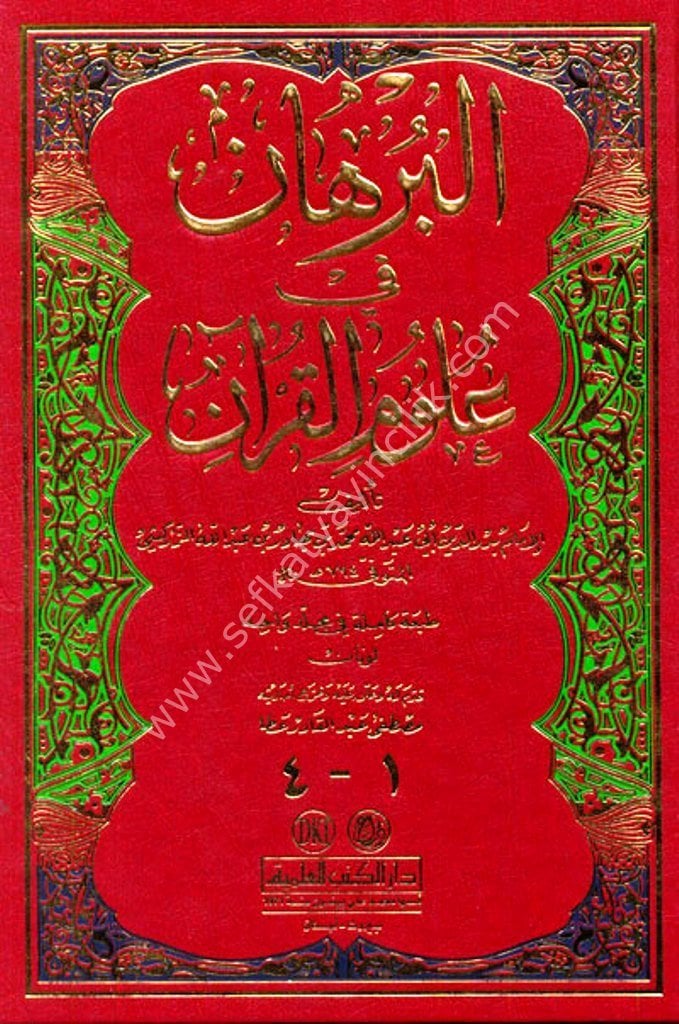 البُرْهَان
في
عُلُومِ القُرآنِ
تأليف
الإمام بدر الدين أبي عبد الله محمد بن بهادر بن عبد الله الزركشي
المتوفى ٧٩٤هـ
طبعة كاملة في مجلد واحد
قدم له وعلق عليه وخرج أحاديثه
مصطفى عبد القادر عطا
١ - ٤
DKI
دار الكتب العلمية
بيروت - لبنان
www.sefkatyayincilik.com